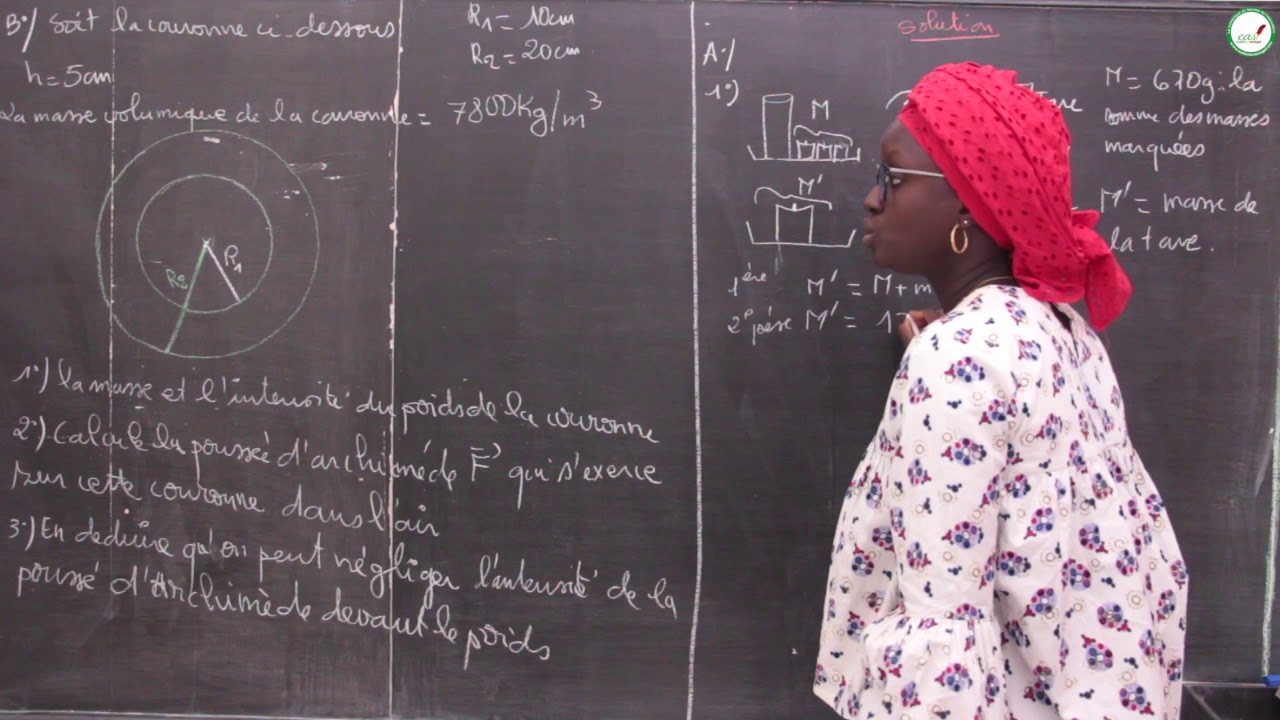 B°/ Soit la couronne ci-dessous
R1 = 10cm
R2 = 20cm
h = 5cm
La masse volumique de la couronne = 7800Kg/m³
R2
R1
1°) la masse et l'intensité du poids de la couronne
2°) Calcule la poussée d'archiméde F qui s'exerce
sur cette couronne dans l'air
3°) En deduire qu'on peut négliger l'intensité de la
poussé d'Archimède devant le poids
Solution
A°/
1°)
M
M'
M = 670g : la
somme des masses
marquées
M' = masse de
la tare.
1ère M' = M + m
2e pésée M' =
eas!